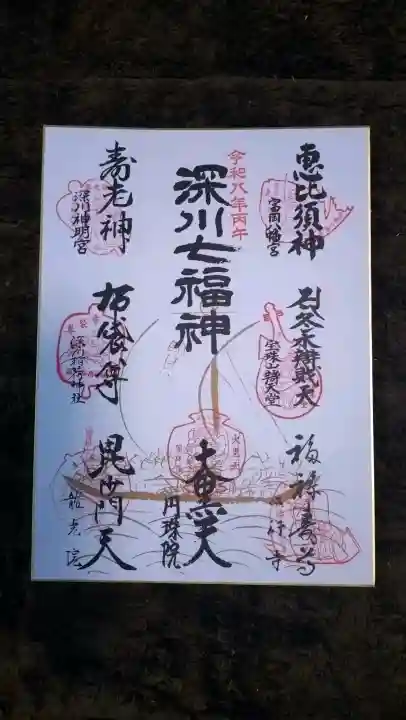 恵比須神
富岡八幡宮
冬木辨財天
福禄寿
心行寺
令和八年丙午
深川七福神
大黒天
円珠院
寿老神
深川神明宮
布袋尊
深川稲荷神社
毘沙門天
龍光院